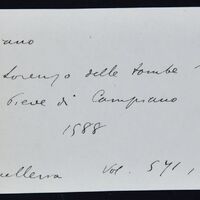 iano
Lorenzo delle tombe
Pieve di Campiano
1588
ulleria Vol. 571,